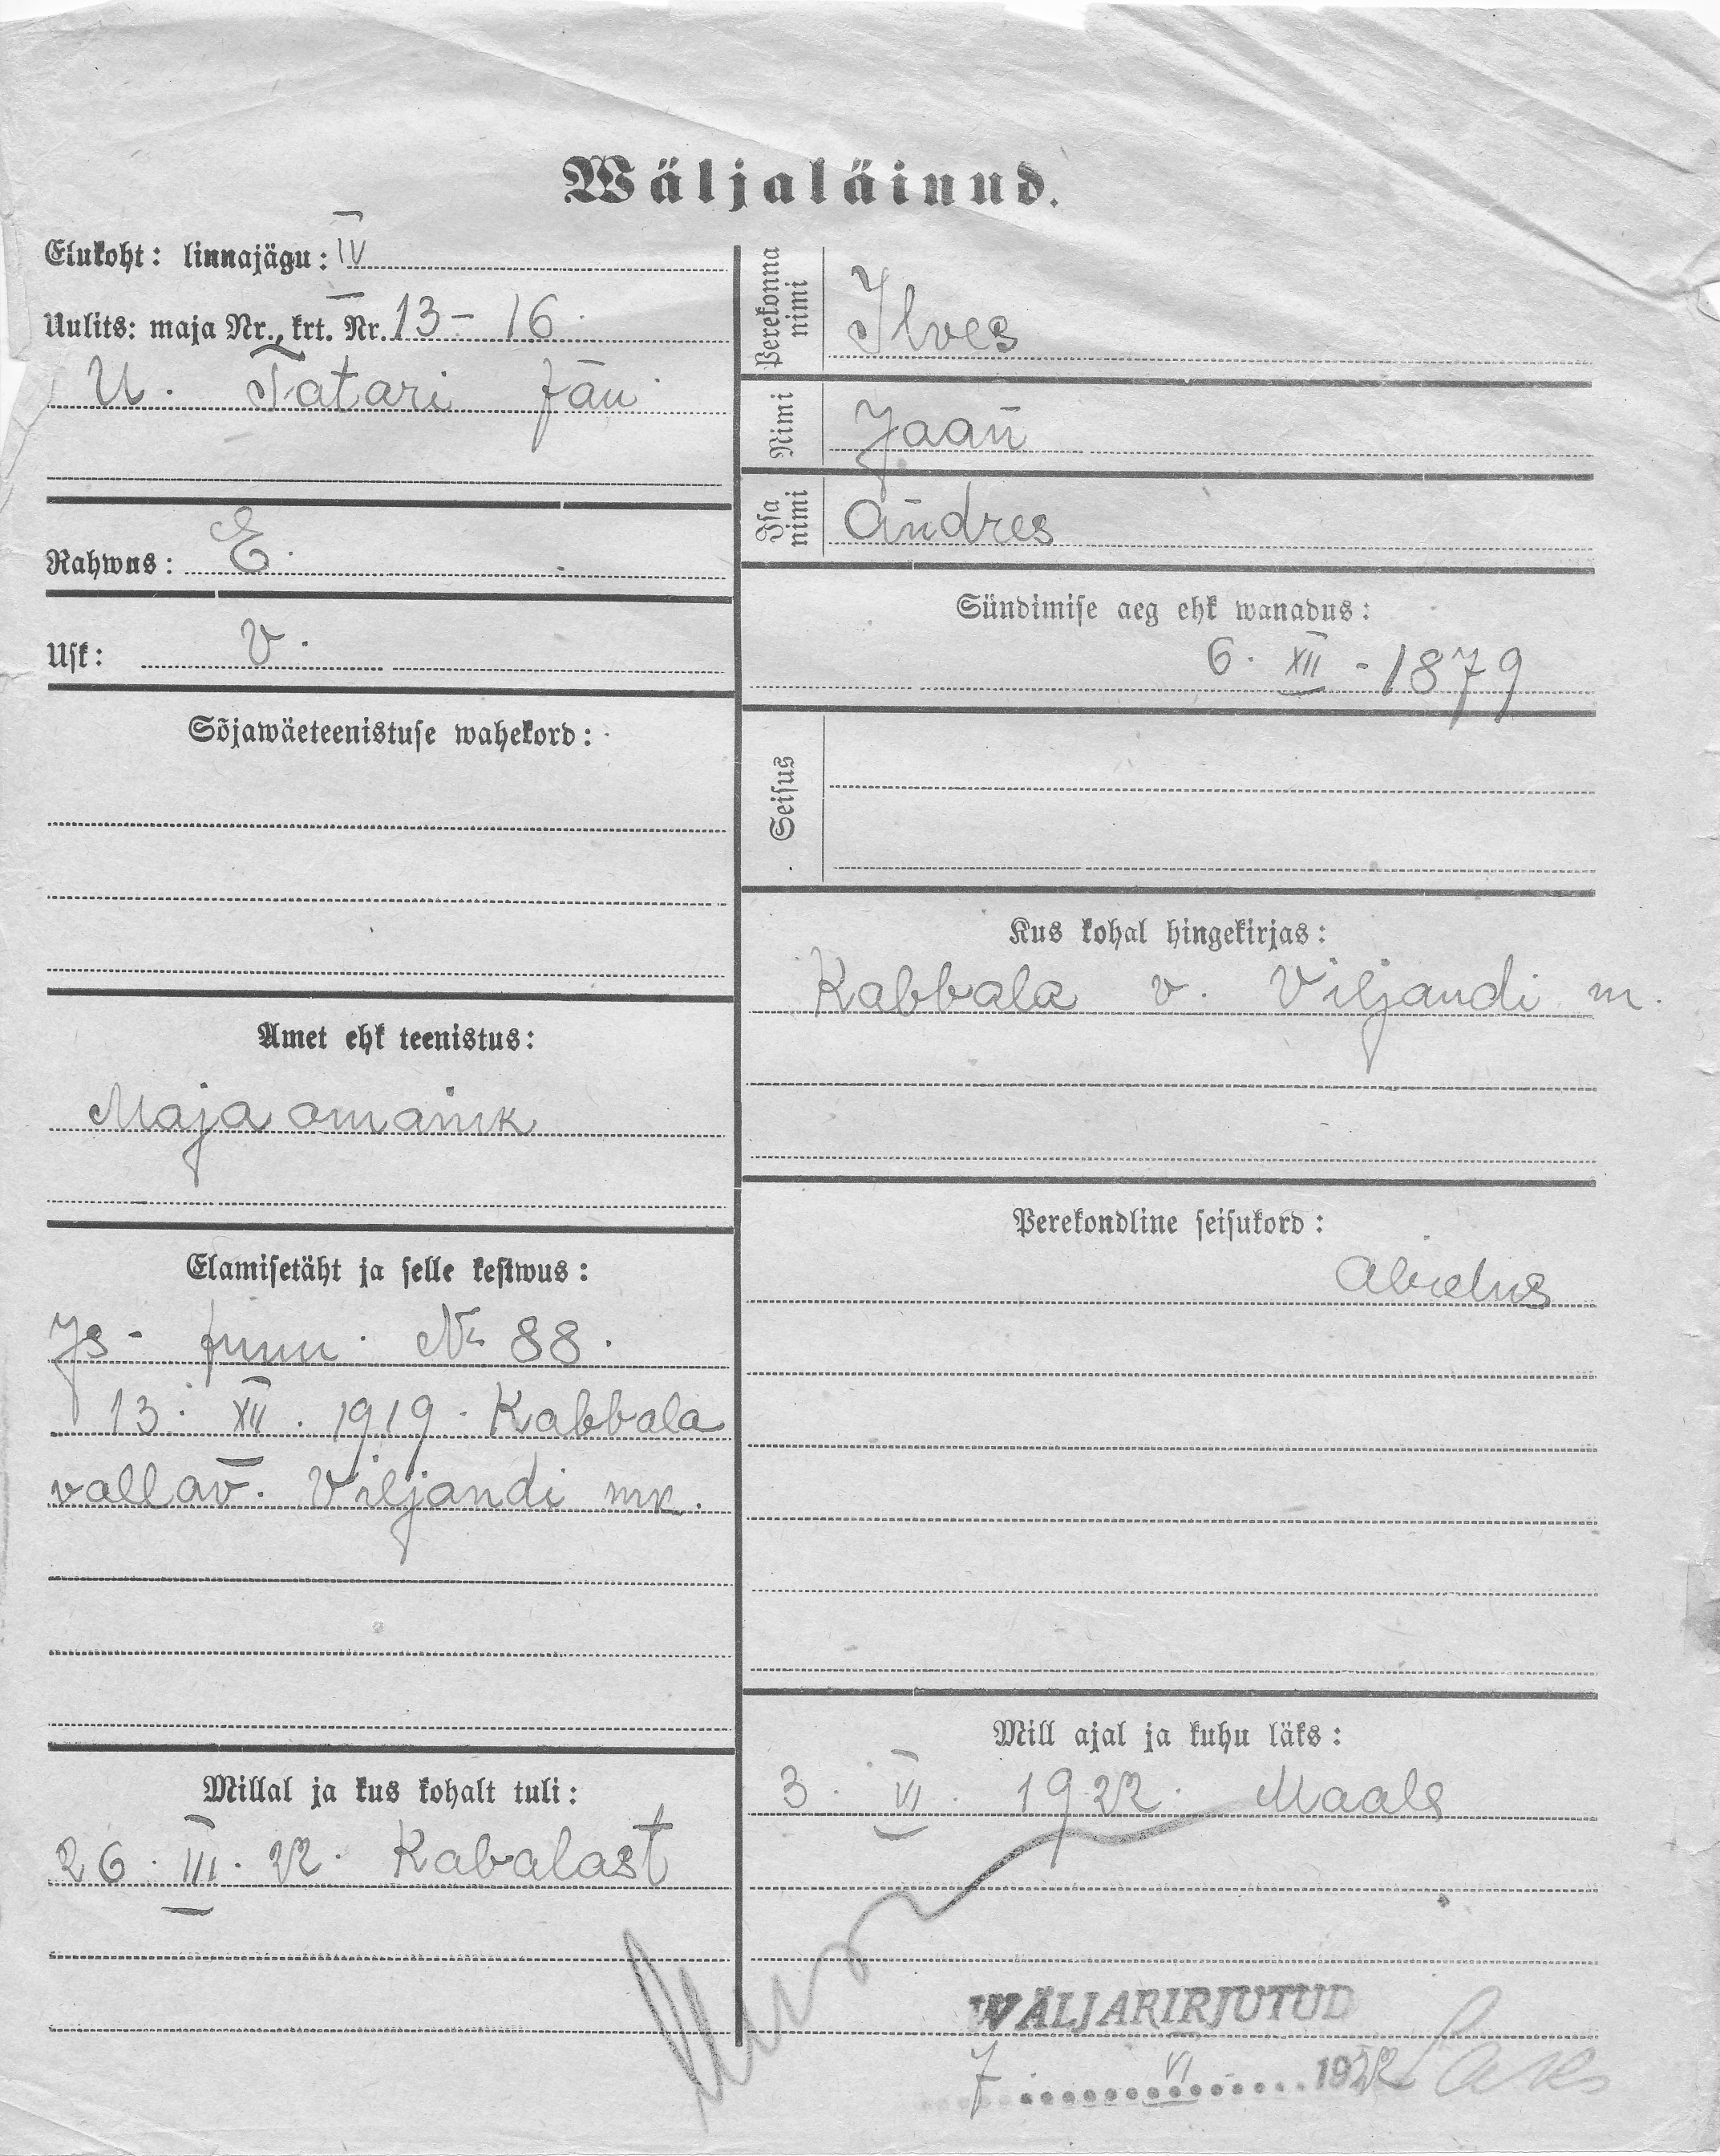 Wäljaläinud.
Elukoht: linnajägu: IV
Uulits: maja Nr., krt. Nr. 13 - 16.
U. Tatari tän.
Rahwus: E.
Usk: V.
Sõjawäeteenistuse wahekord:
Amet ehk teenistus:
Maja omanik
Elamisetäht ja selle kestwus:
Is- tunn. № 88.
13. XII. 1919. Kabbala
vallav. Viljandi mk.
Millal ja kus kohalt tuli:
26. III. 22. Kabalast
Perekonna nimi
Ilves
Nimi
Jaan
Isa nimi
Andres
Sündimise aeg ehk wanadus:
6. XII - 1879
Seisus
Kus kohal hingekirjas:
Kabbala v. Viljandi m.
Perekondline seisukord:
Abielus
Mill ajal ja kuhu läks:
3. VI. 1922. Maale
WÄLJAKIRJUTUD
7. VI 1922